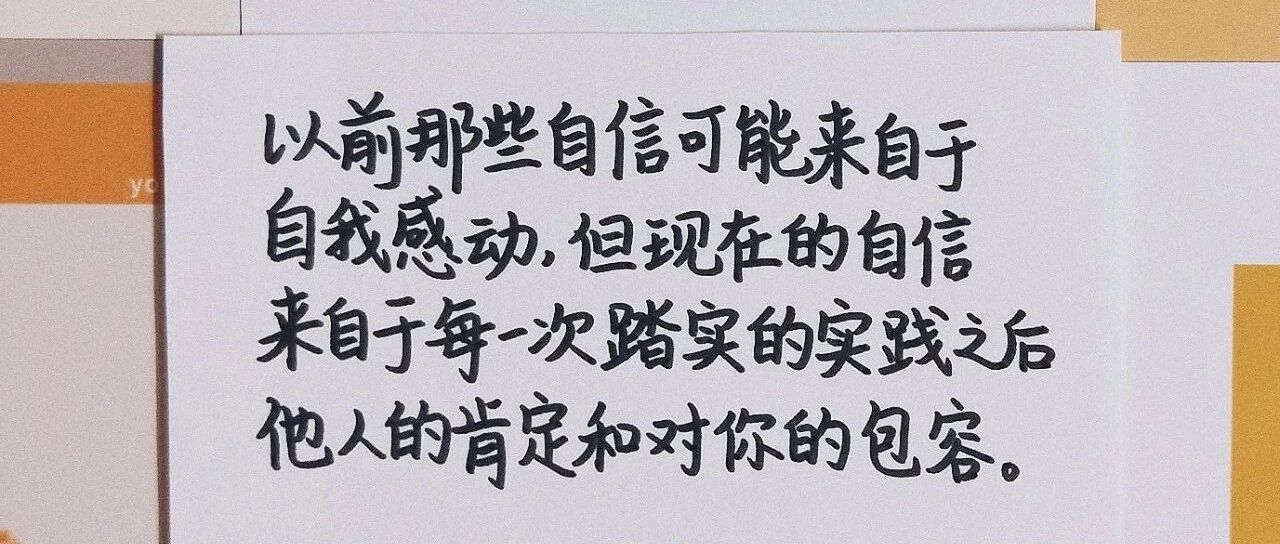 以前那些自信可能来自于
自我感动,但现在的自信
来自于每一次踏实的实践之后
他人的肯定和对你的包容。
yo